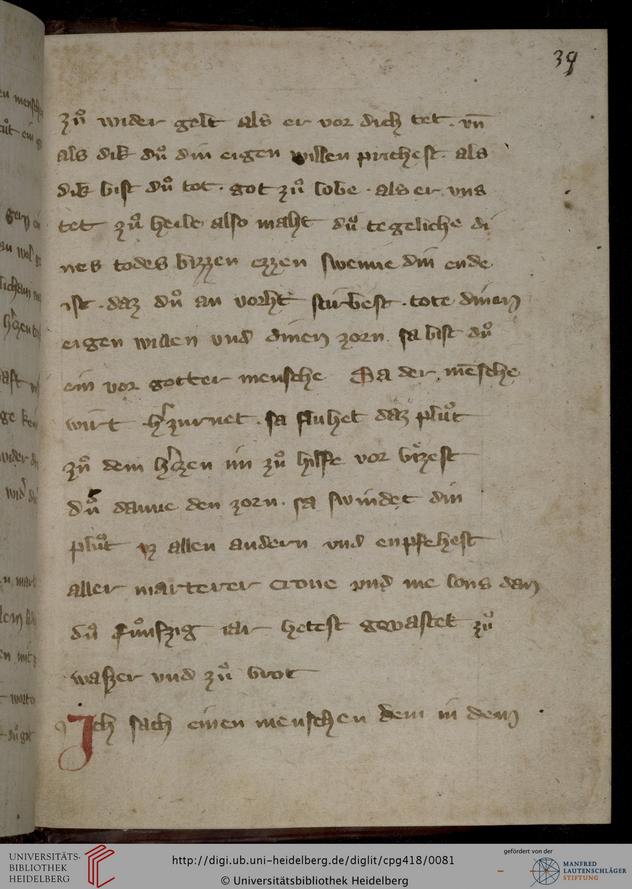 39
zuͦ wider gelt als er vor dich tet · vn̄
als dik duͦ din eigen willen prichest · als
dik bist duͦ tot · got zuͦ lobe · als er vns
tet zuͦ heile also maht duͦ tegeliche di
nes todes bizzen ezzen swenne din ende
ist · daz duͦ an vorht stirbest · tote dinen
eigen willen vnd dinen zorn · sa bist duͦ
ein vor gotter mensche Sa der mēsche
wirt zurnet · sa fluhet daz pluͦt
zuͦ dem zuͦ hilfe vor
duͦ danne den zorn · sa swindet din
pluͦt vz allen andern vnd enpfehest
aller marterer crone vnd me lons dan
duͦ fuͦnfzig iar hetest gevastet zuͦ
wasser vnd zuͦ brot
Jch sach einen menschen dem in dem
UNIVERSITÄTS-
BIBLIOTHEK
HEIDELBERG
http://digi.ub.uni-heidelberg.de/diglit/cpg418/0081
© Universitätsbibliothek Heidelberg
gefördert von der
MANFRED
LAUTENSCHLÄGER
STIFTUNG